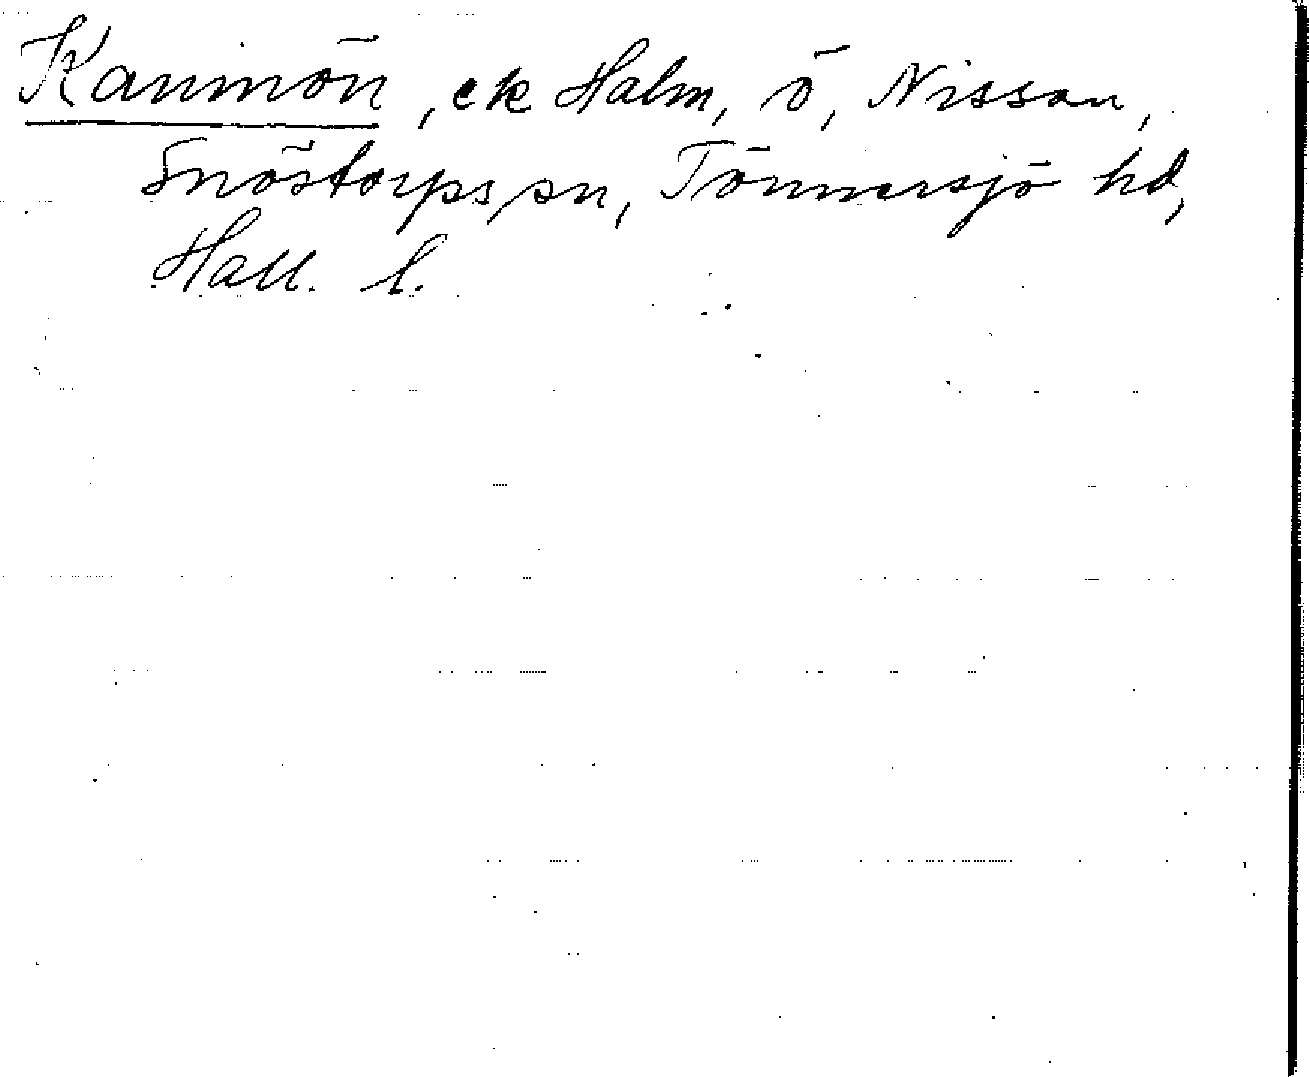 Kaninön, ek Halm, ö, Nissan,
Snöstorps sn, Tönnersjö hd,
Hall. l.